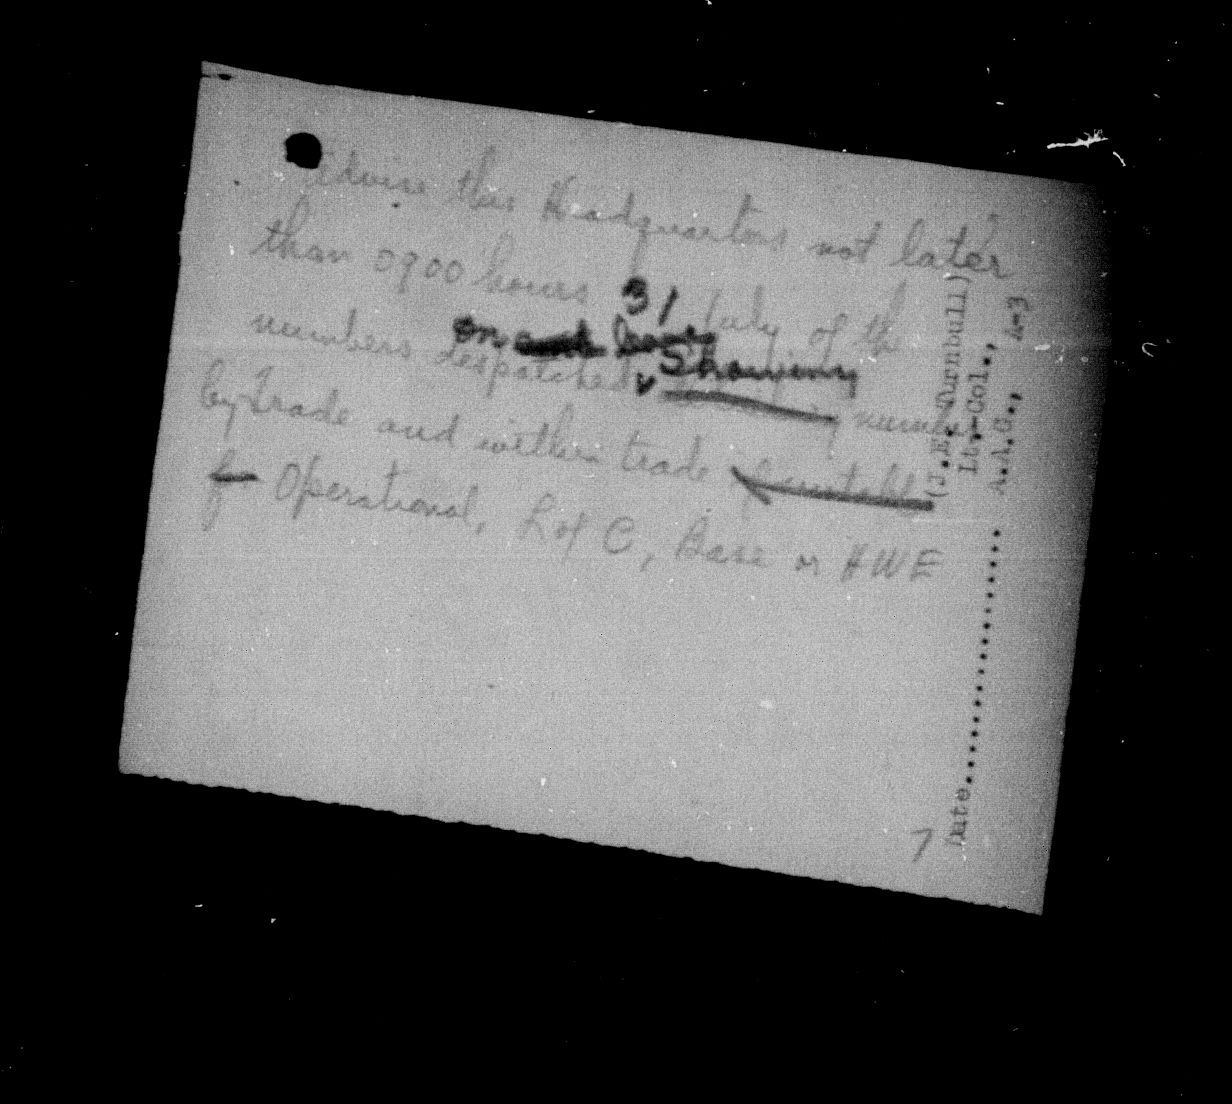 Advise this Headquarters not later
than 0900 hours 31 July of the
on boats
numbers despatched showing numbers
by trade and within trade suitable
for Operational, L of C, Base or HWE
(J.E. Turnbull)
Lt.-Col.,
A.A.G., A-3
Date..............................
7